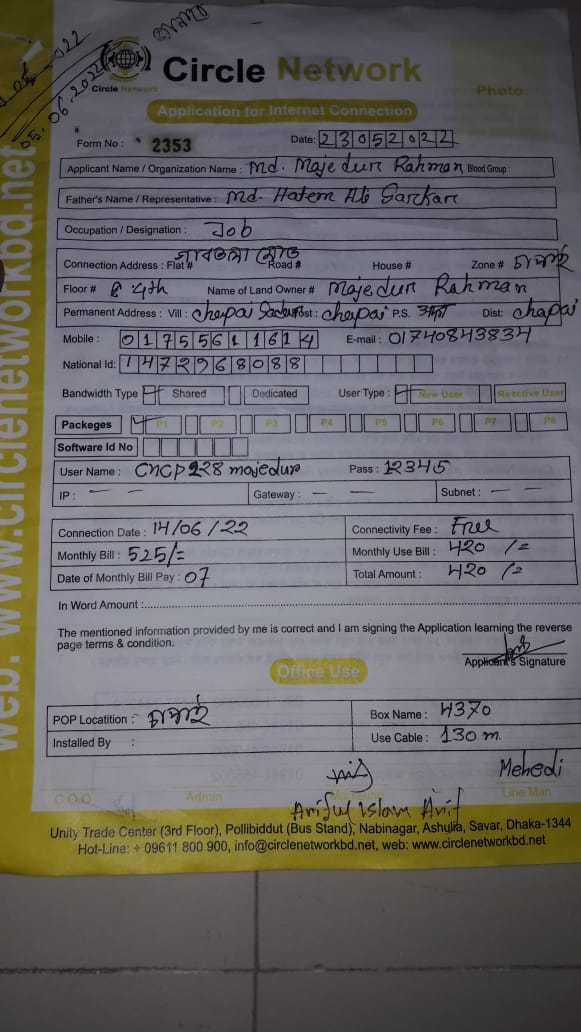 05.06.2022
Circle Network
Circle Network
Photo
Application for Internet Connection
Form No : 2353 Date: 23052022
Applicant Name / Organization Name : Md. Majedur Rahman Blood Group :
Father's Name / Representative : Md. Hatem Ali Sarkar
Occupation / Designation : Job
Connection Address : Flat # রোড Road # House # Zone #
Floor # 4th Name of Land Owner # Majedur Rahman
Permanent Address : Vill : chapai Sadar Post : chapai P.S. Dist: chapai
Mobile : 01755611614 E-mail : 01740843834
National Id: 1472968088
Bandwidth Type Shared Dedicated User Type : New User Reactive User
Packeges P1 P2 P3 P4 P5 P6 P7 P8
Software Id No
User Name : CNCP228 majedur Pass : 12345
IP : — — Gateway : — — Subnet : — —
Connection Date : 14/06/22 Connectivity Fee : Free
Monthly Bill : 525/= Monthly Use Bill : 420 /=
Date of Monthly Bill Pay : 07 Total Amount : 420 /=
In Word Amount :
The mentioned information provided by me is correct and I am signing the Application learning the reverse
page terms & condition.
Applicant's Signature
Office Use
POP Locatition : Box Name : 4370
Installed By : Use Cable : 130 m.
Mehedi
C.O.O Admin Marketing Line Man
Ariful Islam Arif
Unity Trade Center (3rd Floor), Pollibiddut (Bus Stand), Nabinagar, Ashulia, Savar, Dhaka-1344
Hot-Line: + 09611 800 900, info@circlenetworkbd.net, web: www.circlenetworkbd.net
web: www.circlenetworkbd.net